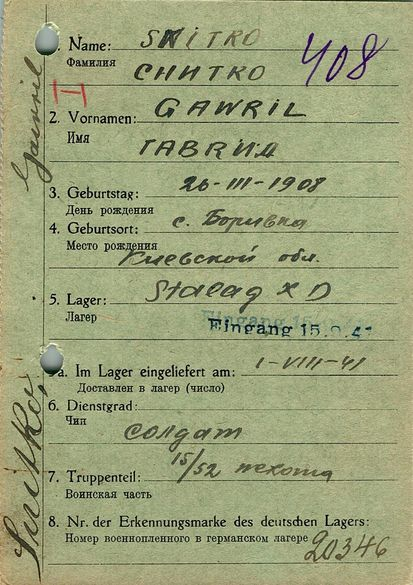 1. Name: SNITKO
Фамилия
СНИТКО
408
2. Vornamen: GAWRIL
Имя
ГАВRИЛ
3. Geburtstag: 26-III-1908
День рождения
4. Geburtsort: с. Боривка
Место рождения
Киевской обл.
5. Lager: Stalag X D
Лагер
Eingang 15.
a. Im Lager eingeliefert am: 1-VIII-41
Доставлен в лагер (число)
6. Dienstgrad:
Чин
солдат
15/52 пехота
7. Truppenteil:
Воинская часть
8. Nr. der Erkennungsmarke des deutschen Lagers:
Номер военнопленного в германском лагере 20346
Snitko, Gawril